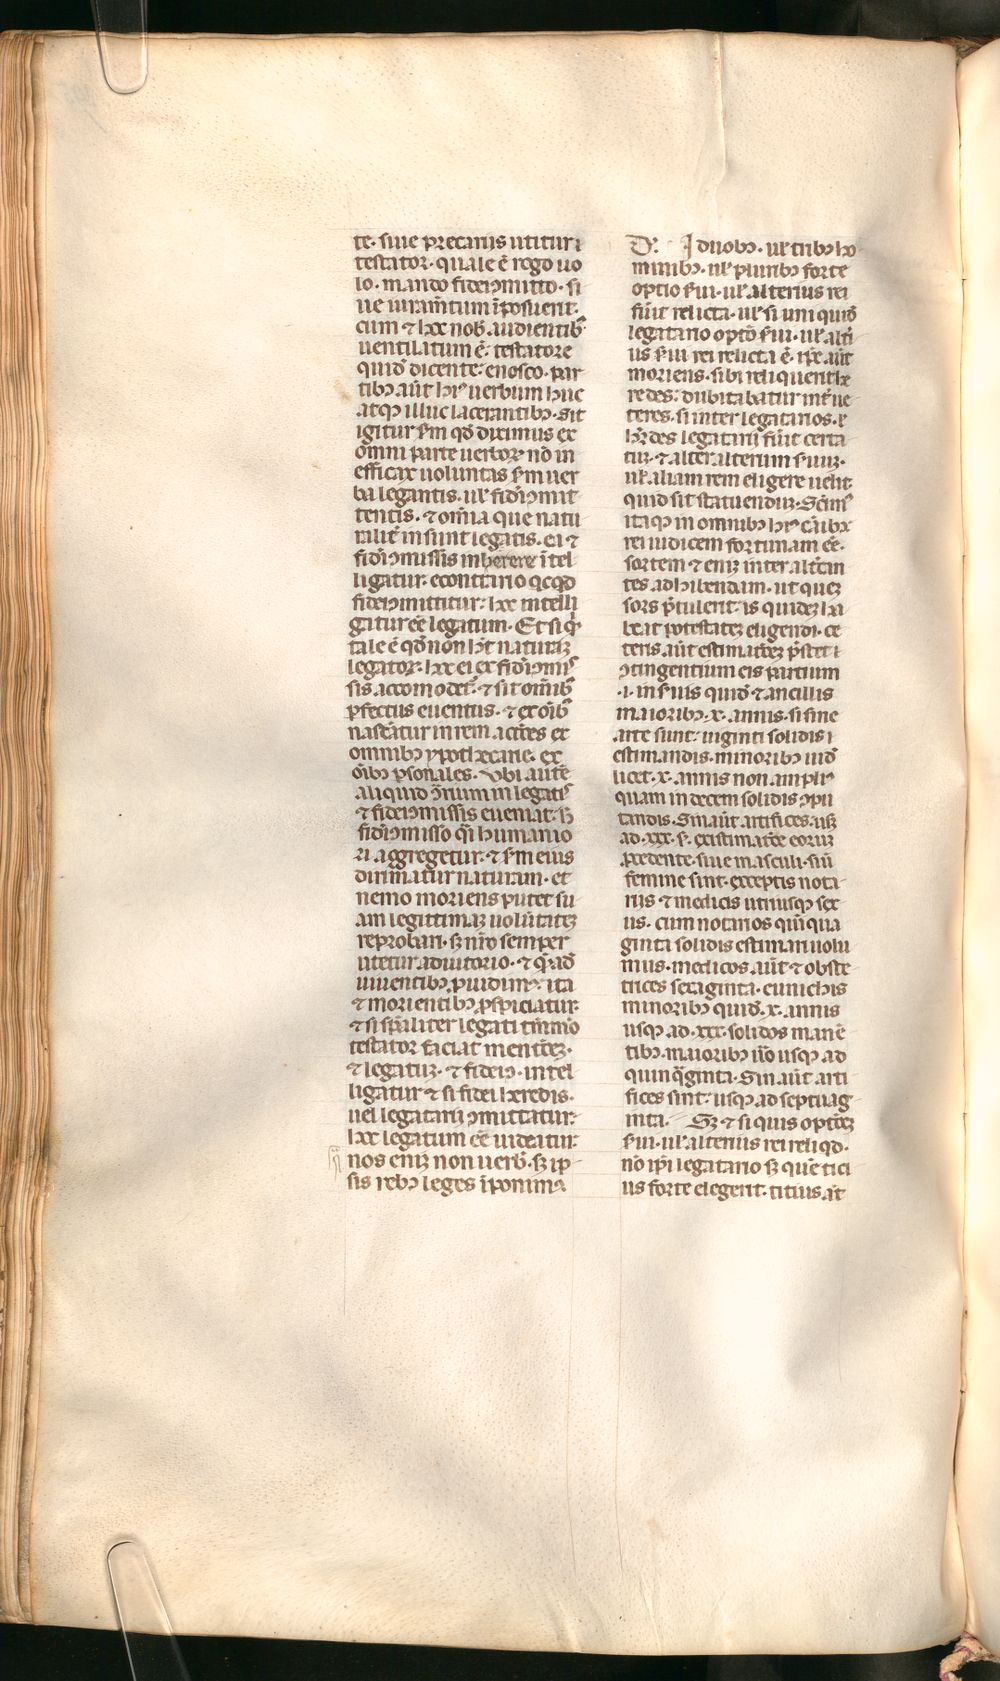 te. siue precariis utitur
testator. quale ē rogo uo
lo. mando fideiↄmitto. si
ue iuram̄tum īposuerit.
cum ⁊ hec nob̄ audientib᷒
uentilatum ē. testatore
quid̄ dicente. enosco. par
tib᷒ aūt her᷒ uerbum huc
atq᷒ illuc lacerantib᷒. sit
igitur s̄m qd̄ diximus ex
omni parte uerbor᷒ nō in
efficax uoluntas s̄m uer
ba legantis. ul̄ fid̄iↄmit
tentis. ⁊ om̄ia que natu
ralit̄ insunt legatis. ei ⁊
fid̄iↄmissis inherere ītel
ligatur. econtrario qcqd
fideiↄmittitur. hec intelli
gitur eē legatum. Et si qͥ
tale ē qd̄ non h̄t naturaꝫ
legator᷒. hec ei ex fid̄iↄmis
sis accomodet. ⁊ sit om̄ib᷒
ꝑfectus euentus. ⁊ ex oīb᷒
nascātur in rem acc̄oes ex
omnibus ypothecarie. ex
oīb᷒ ꝑsonales. Vbi autē
aliquid ↄ̄rium in legatis
⁊ fideiↄmissis eueniat. hͦ
fid̄iↄmisso qͣi humanio
ri aggregetur. ⁊ s̄m eius
dirimatur naturam. et
nemo moriens putet su
am legittimaꝫ uolūtateꝫ
reprobari. sꝫ nr̄o semper
utetur adiutorio. ⁊ qͣ.ad
uiuentib᷒ ꝓuidim᷒. ita
⁊ morientib᷒ ꝓspiciatur.
⁊ si sp̄aliter legati tm̄mō
testator faciat mentōeꝫ.
⁊ legatuꝫ. ⁊ fideiↄ. intel
ligatur ⁊ si fidei heredis.
uel legatarii ↄmittatur.
hec legatum eē uideatur.
nos eniꝫ non uerb̄. sꝫ ip
sis reb᷒ leges īponima
D. I duob᷒. ul̄ trib᷒ ho
minib᷒. ul̄ plurib᷒ forte
optio s̄ui. ul̄ alterius rei
fu̅it relicta. ul̄ si uni quid̄
legatario optō s̄ui. ul̄ alt̄i
us s̄ui rei relicta ē. ip̄e aūt
moriens. sibi reliquerit he
redes. dubitabatur int̄ ue
teres. si inter legatarios. ł
h̄edes legatarii fu̅it certa
tuꝫ. ⁊ alter alterum s̄uuꝫ.
ul̄ aliam rem eligere uelit
quid sit statuenduꝫ. Sācim᷒
itaq᷒ in omnib᷒ her᷒ casib᷒
rei iudicem fortunam eē.
sortem ⁊ eniꝫ inter altercan
tes adhibendam. ut queꝫ
sors p̄tulerit. is quideꝫ ha
beat potestateꝫ eligendi. ce
teris aūt estimatōeꝫ p̄stet
ↄtingentium eis partium
.i. in s̄uis quid̄ ⁊ ancillis
maiorib᷒ .x. annis. si sine
arte sunt. uiginti solidis
estimandis. minorib᷒ uid̄
licet .x. annis non ampli᷒
quam in decem solidis ↄpu
tandis. Sin aūt artifices. usꝫ
ad .xxx. s̄. existimatōe eoruꝫ
ꝓcedente. siue masculi. siu̅
femine sint. exceptis nota
riis ⁊ medicis utriusq᷒ sex
us. cum notarios quinqua
ginta solidis estimari uolu
mus. medicos aūt ⁊ obste
trices sexaginta. eunichis
minorib᷒ quid̄ .x. annis
usq᷒ ad .xxx. solidos manē
tib᷒. maiorib᷒ ūo usq᷒ ad
quinqͣginta. Sin aūt arti
fices sint. usq᷒ ad septuag
inta. Sꝫ ⁊ si quis optōeꝫ
s̄ui. ul̄ alterius rei reliqd.
nō ip̄i legatario sꝫ quē tici
us forte elegerit. titius aūt